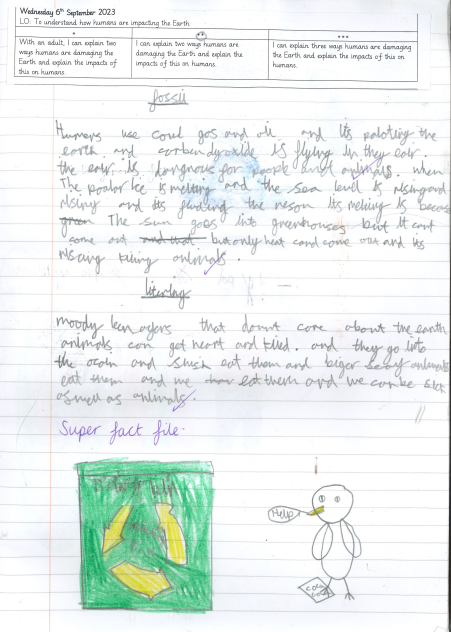 Wednesday 6th September 2023
LO: To understand how humans are impacting the Earth
*
With an adult, I can explain two
ways humans are damaging the
Earth and explain the impacts of
this on humans.
I can explain two ways humans are
damaging the Earth and explain the
impacts of this on humans.
***
I can explain three ways humans are damaging
the Earth and explain the impacts of this on
humans.
fossil
Humens use coul gas and oil and its paloting the
earth and is flying in they eair.
the eair is for people and animals. when
The poolor Ice is melting and the sea level is rising and
rising and its the reson its melting is becas
The sun goes into greenhouses but it cant
come out but only heat cand come out and its
rising killing animals.
litering
moody teenagers that dount care about the earth
animals can get heart and killed. and they go into
the ocain and eat them and biger animals
eat them and we eat them and we can be sick
as well as animals.
Super fact file.
Help